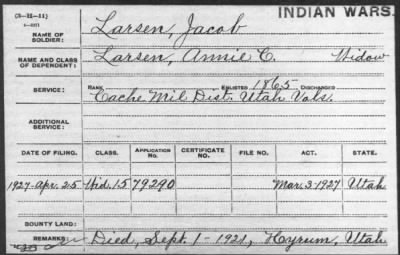 (3-II-11)
INDIAN WARS.
NAME OF SOLDIER: Larsen, Jacob
NAME AND CLASS OF DEPENDENT: Larsen, Annie C. Widow
SERVICE: RANK ENLISTED 1865 DISCHARGED
Cache Mil Dist. Utah Vols.
ADDITIONAL SERVICE:
DATE OF FILING. CLASS. APPLICATION No. CERTIFICATE NO. FILE NO. ACT. STATE.
1927-Apr. 25 Wid. 1579290 Mar. 3-1927 Utah
BOUNTY LAND:
REMARKS: Died, Sept. 1-1921, Hyrum, Utah